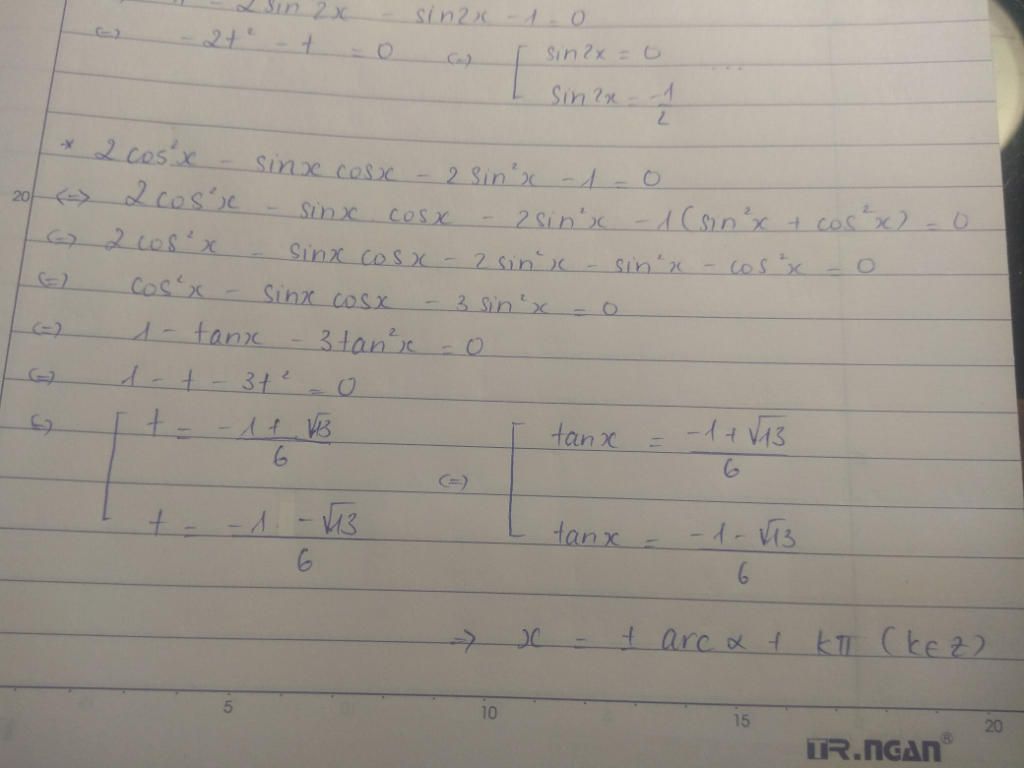 - 2sin 2x - sin2x - 1 = 0
<=> - 2t² - t = 0 <=> [ sin2x = 0 ...
sin2x = -1/2
* 2cos²x - sinx cosx - 2sin²x - 1 = 0
20 <=> 2cos²x - sinx cosx - 2sin²x - 1(sin²x + cos²x) = 0
<=> 2cos²x - sinx cosx - 2sin²x - sin²x - cos²x = 0
<=> cos²x - sinx cosx - 3sin²x = 0
<=> 1 - tanx - 3tan²x = 0
<=> 1 - t - 3t² = 0
<=> [ t = (-1 + √13)/6 <=> [ tanx = (-1 + √13)/6
t = (-1 - √13)/6 tanx = (-1 - √13)/6
=> x = ± arc α + kπ (k∈Z)
5 10 15 20
TR.NGAN®